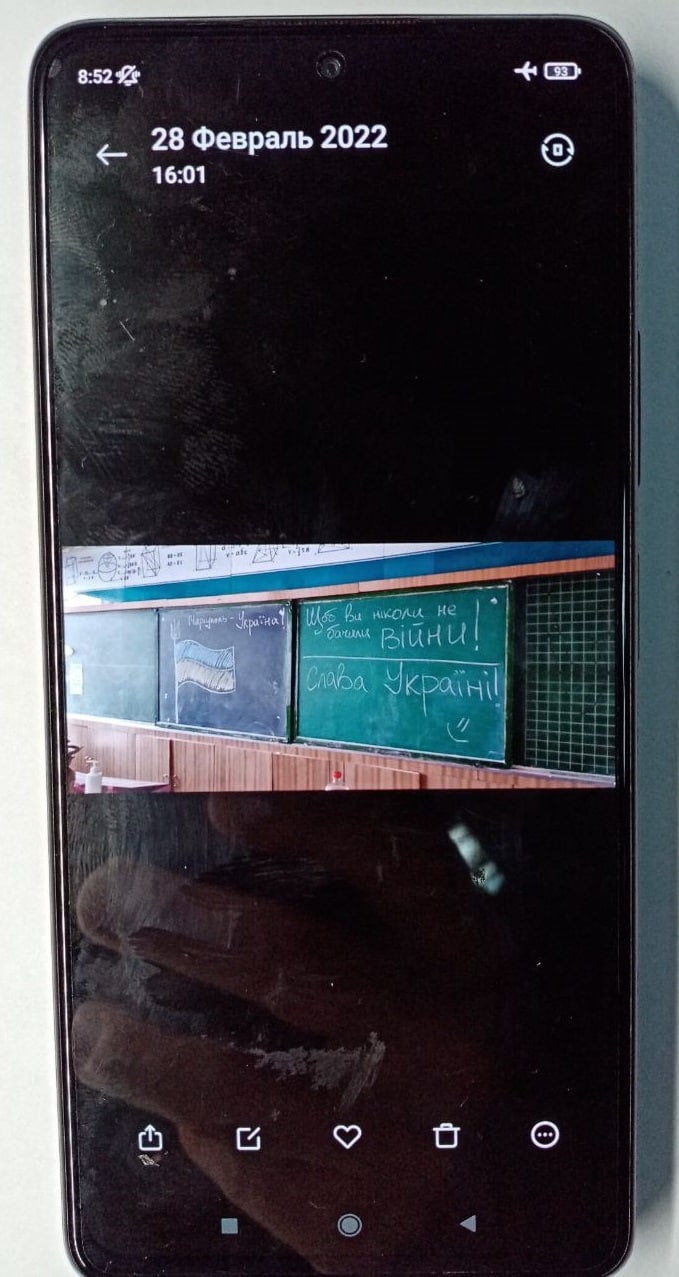 8:52
93
28 Февраль 2022
16:01
Маріуполь - Україна!
Щоб ви ніколи не
бачили ВІЙНИ!
Слава Україні!